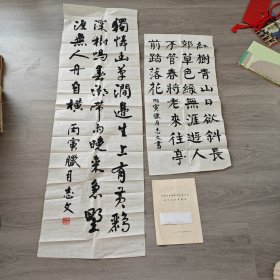 獨憐幽草澗邊生上有黃鸝
深樹鳴春潮帶雨晚來急野
渡無人舟自橫 丙寅臘月志文
紅樹青山日欲斜長
郊草色綠無涯遊人
不管春將老來往亭
前踏落花 丙寅臘月志文書